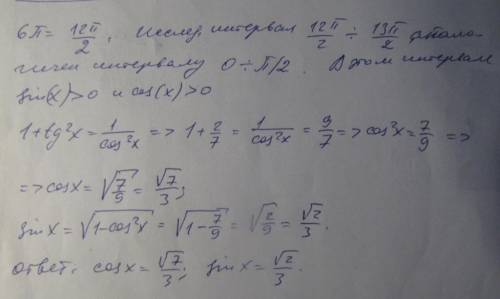 6π = 12π/2. Исслед. интервал 12π/2 ÷ 13π/2 анало-
гичен интервалу 0 ÷ π/2. В этом интервале
sin(x)>0 и cos(x)>0
1+tg²x = 1/cos²x => 1+2/7 = 1/cos²x = 9/7 => cos²x = 7/9 =>
=> cosx = √(7/9) = √7/3;
sinx = √(1-cos²x) = √(1-7/9) = √(2/9) = √2/3.
ответ. cosx = √7/3; sinx = √2/3.